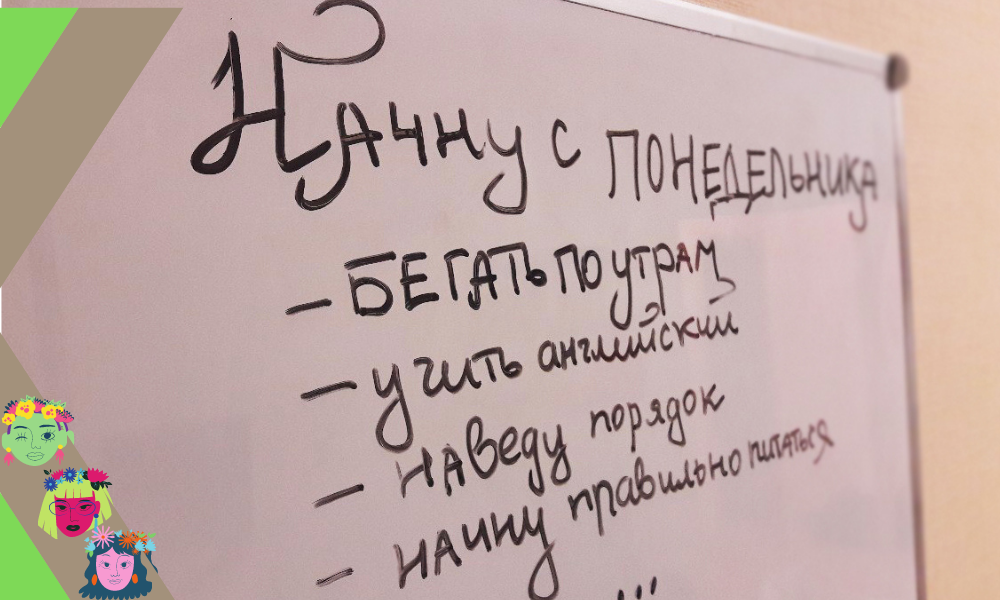 Начну с понедельника
- Бегать по утрам
- учить английский
- наведу порядок
- начну правильно питаться
...